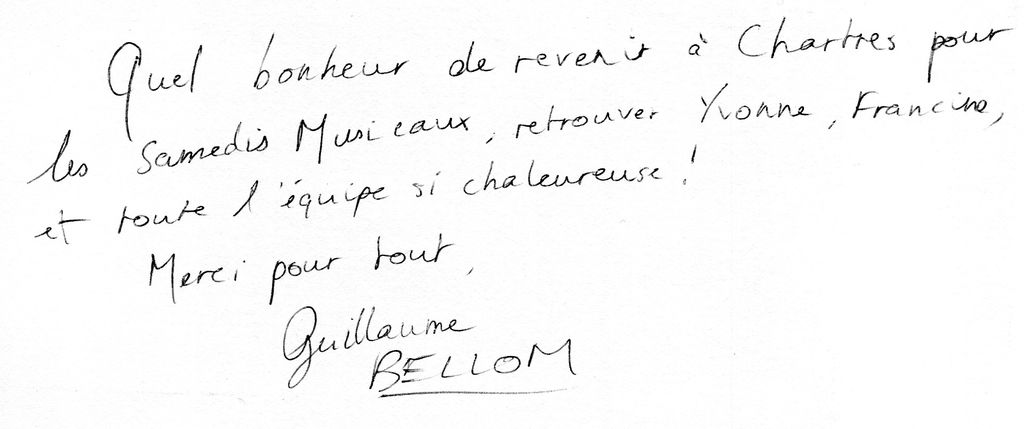 Quel bonheur de revenir à Chartres pour
les Samedis Musicaux, retrouver Yvonne, Francine,
et toute l'équipe si chaleureuse !
Merci pour tout,
Guillaume
BELLOM